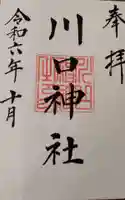 奉拝
川田神社
令和六年十月